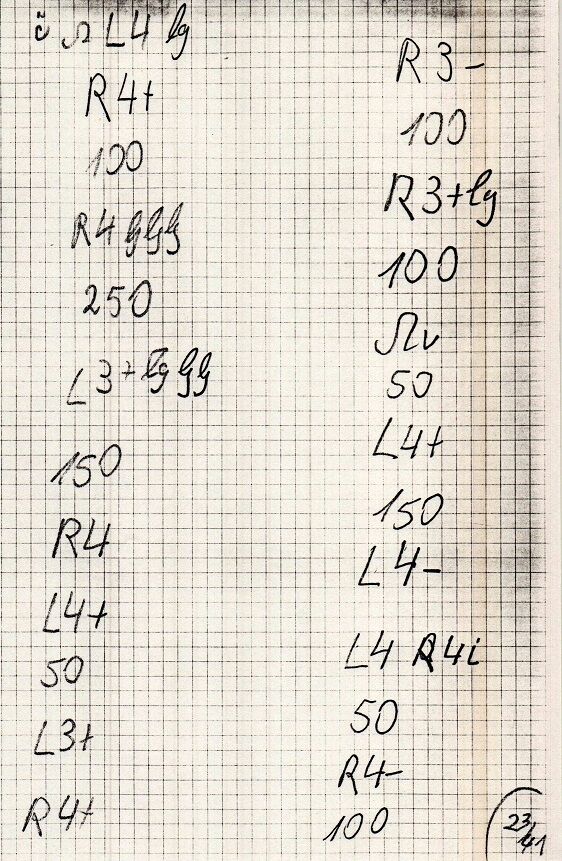 Ω L4 lg
R4+
100
R4 lg lg lg
250
L3+ lg lg lg
150
R4
L4+
50
L3+
R4+
R3-
100
R3+lg
100
Ωv
50
L4+
150
L4-
L4 R4i
50
R4-
100
23/41